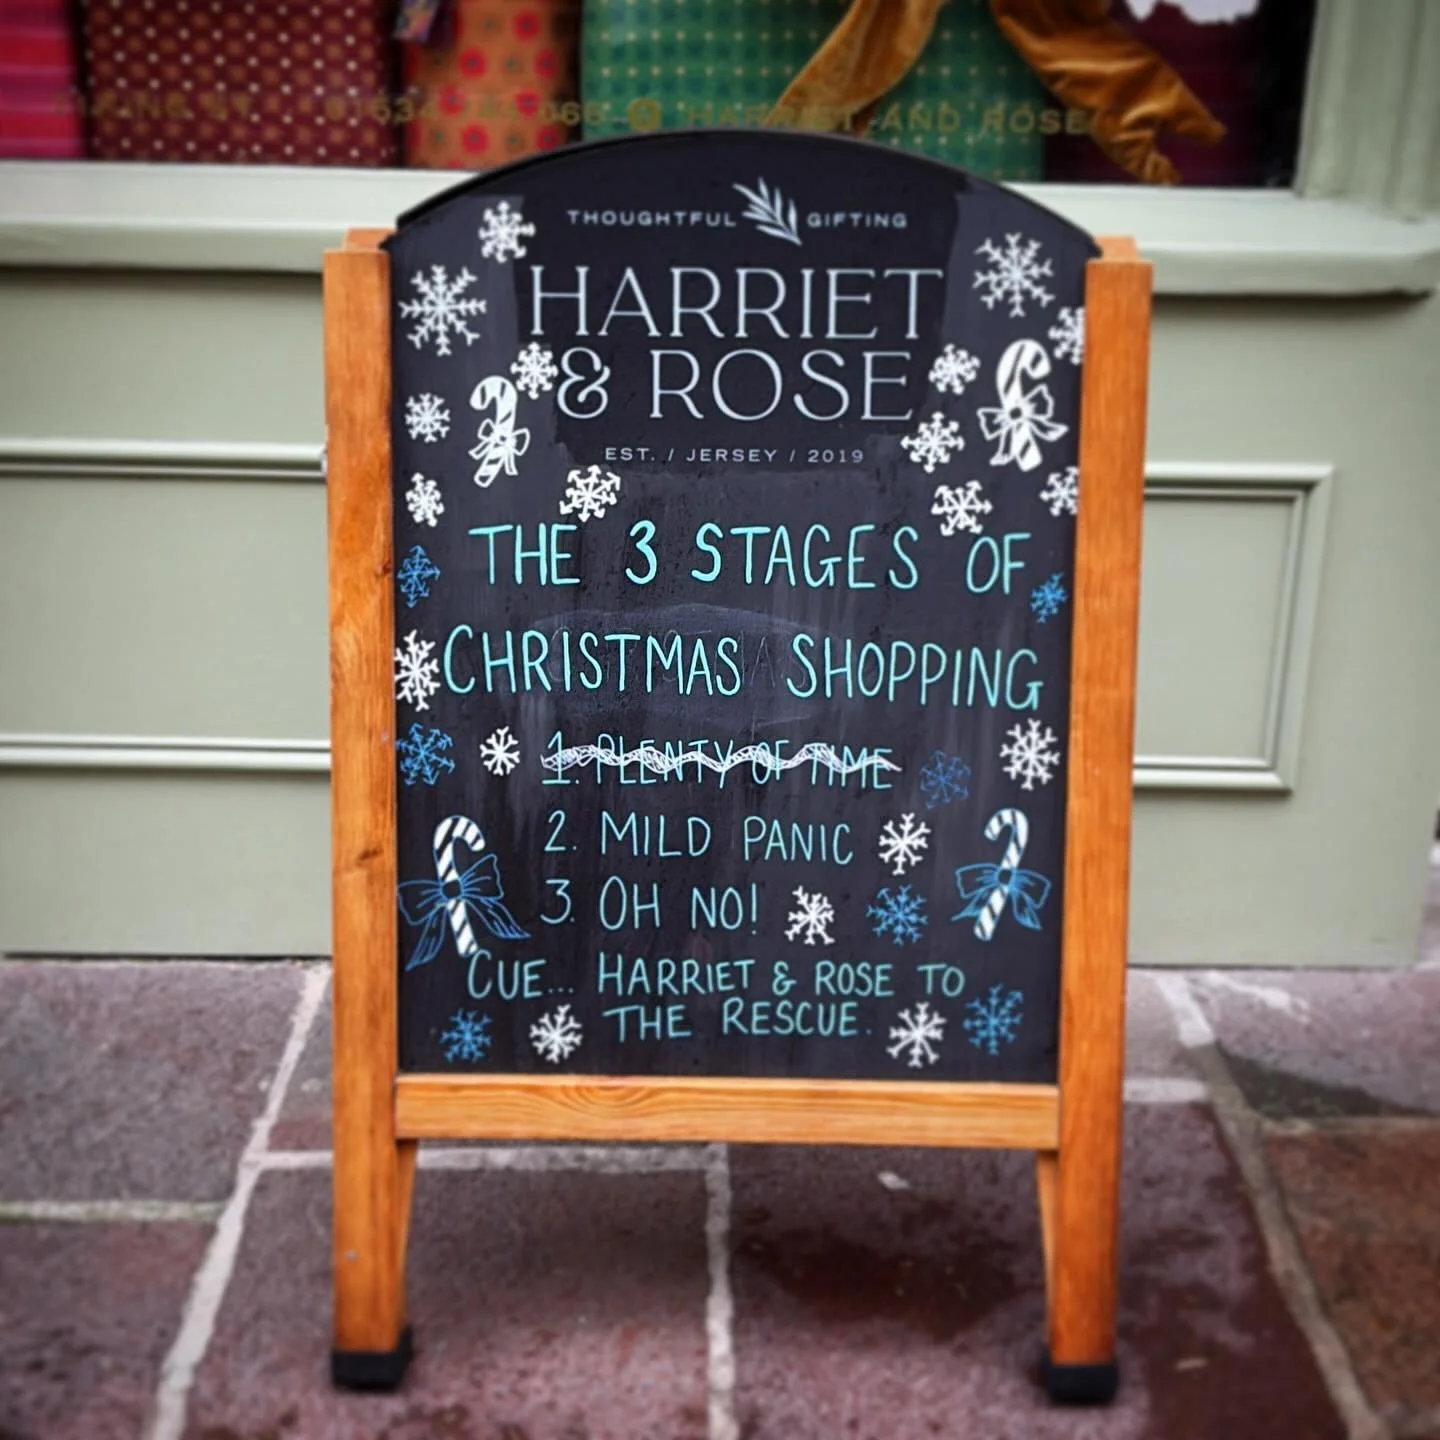 HARRIET AND ROSE
THOUGHTFUL GIFTING
HARRIET
& ROSE
EST. / JERSEY / 2019
THE 3 STAGES OF
CHRISTMAS SHOPPING
1. PLENTY OF TIME
2. MILD PANIC
3. OH NO!
CUE... HARRIET & ROSE TO
THE RESCUE.